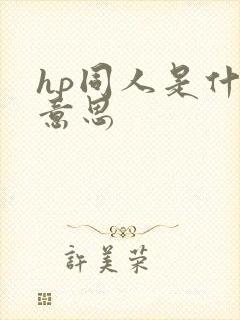 hp同人是什
意思
許美荣